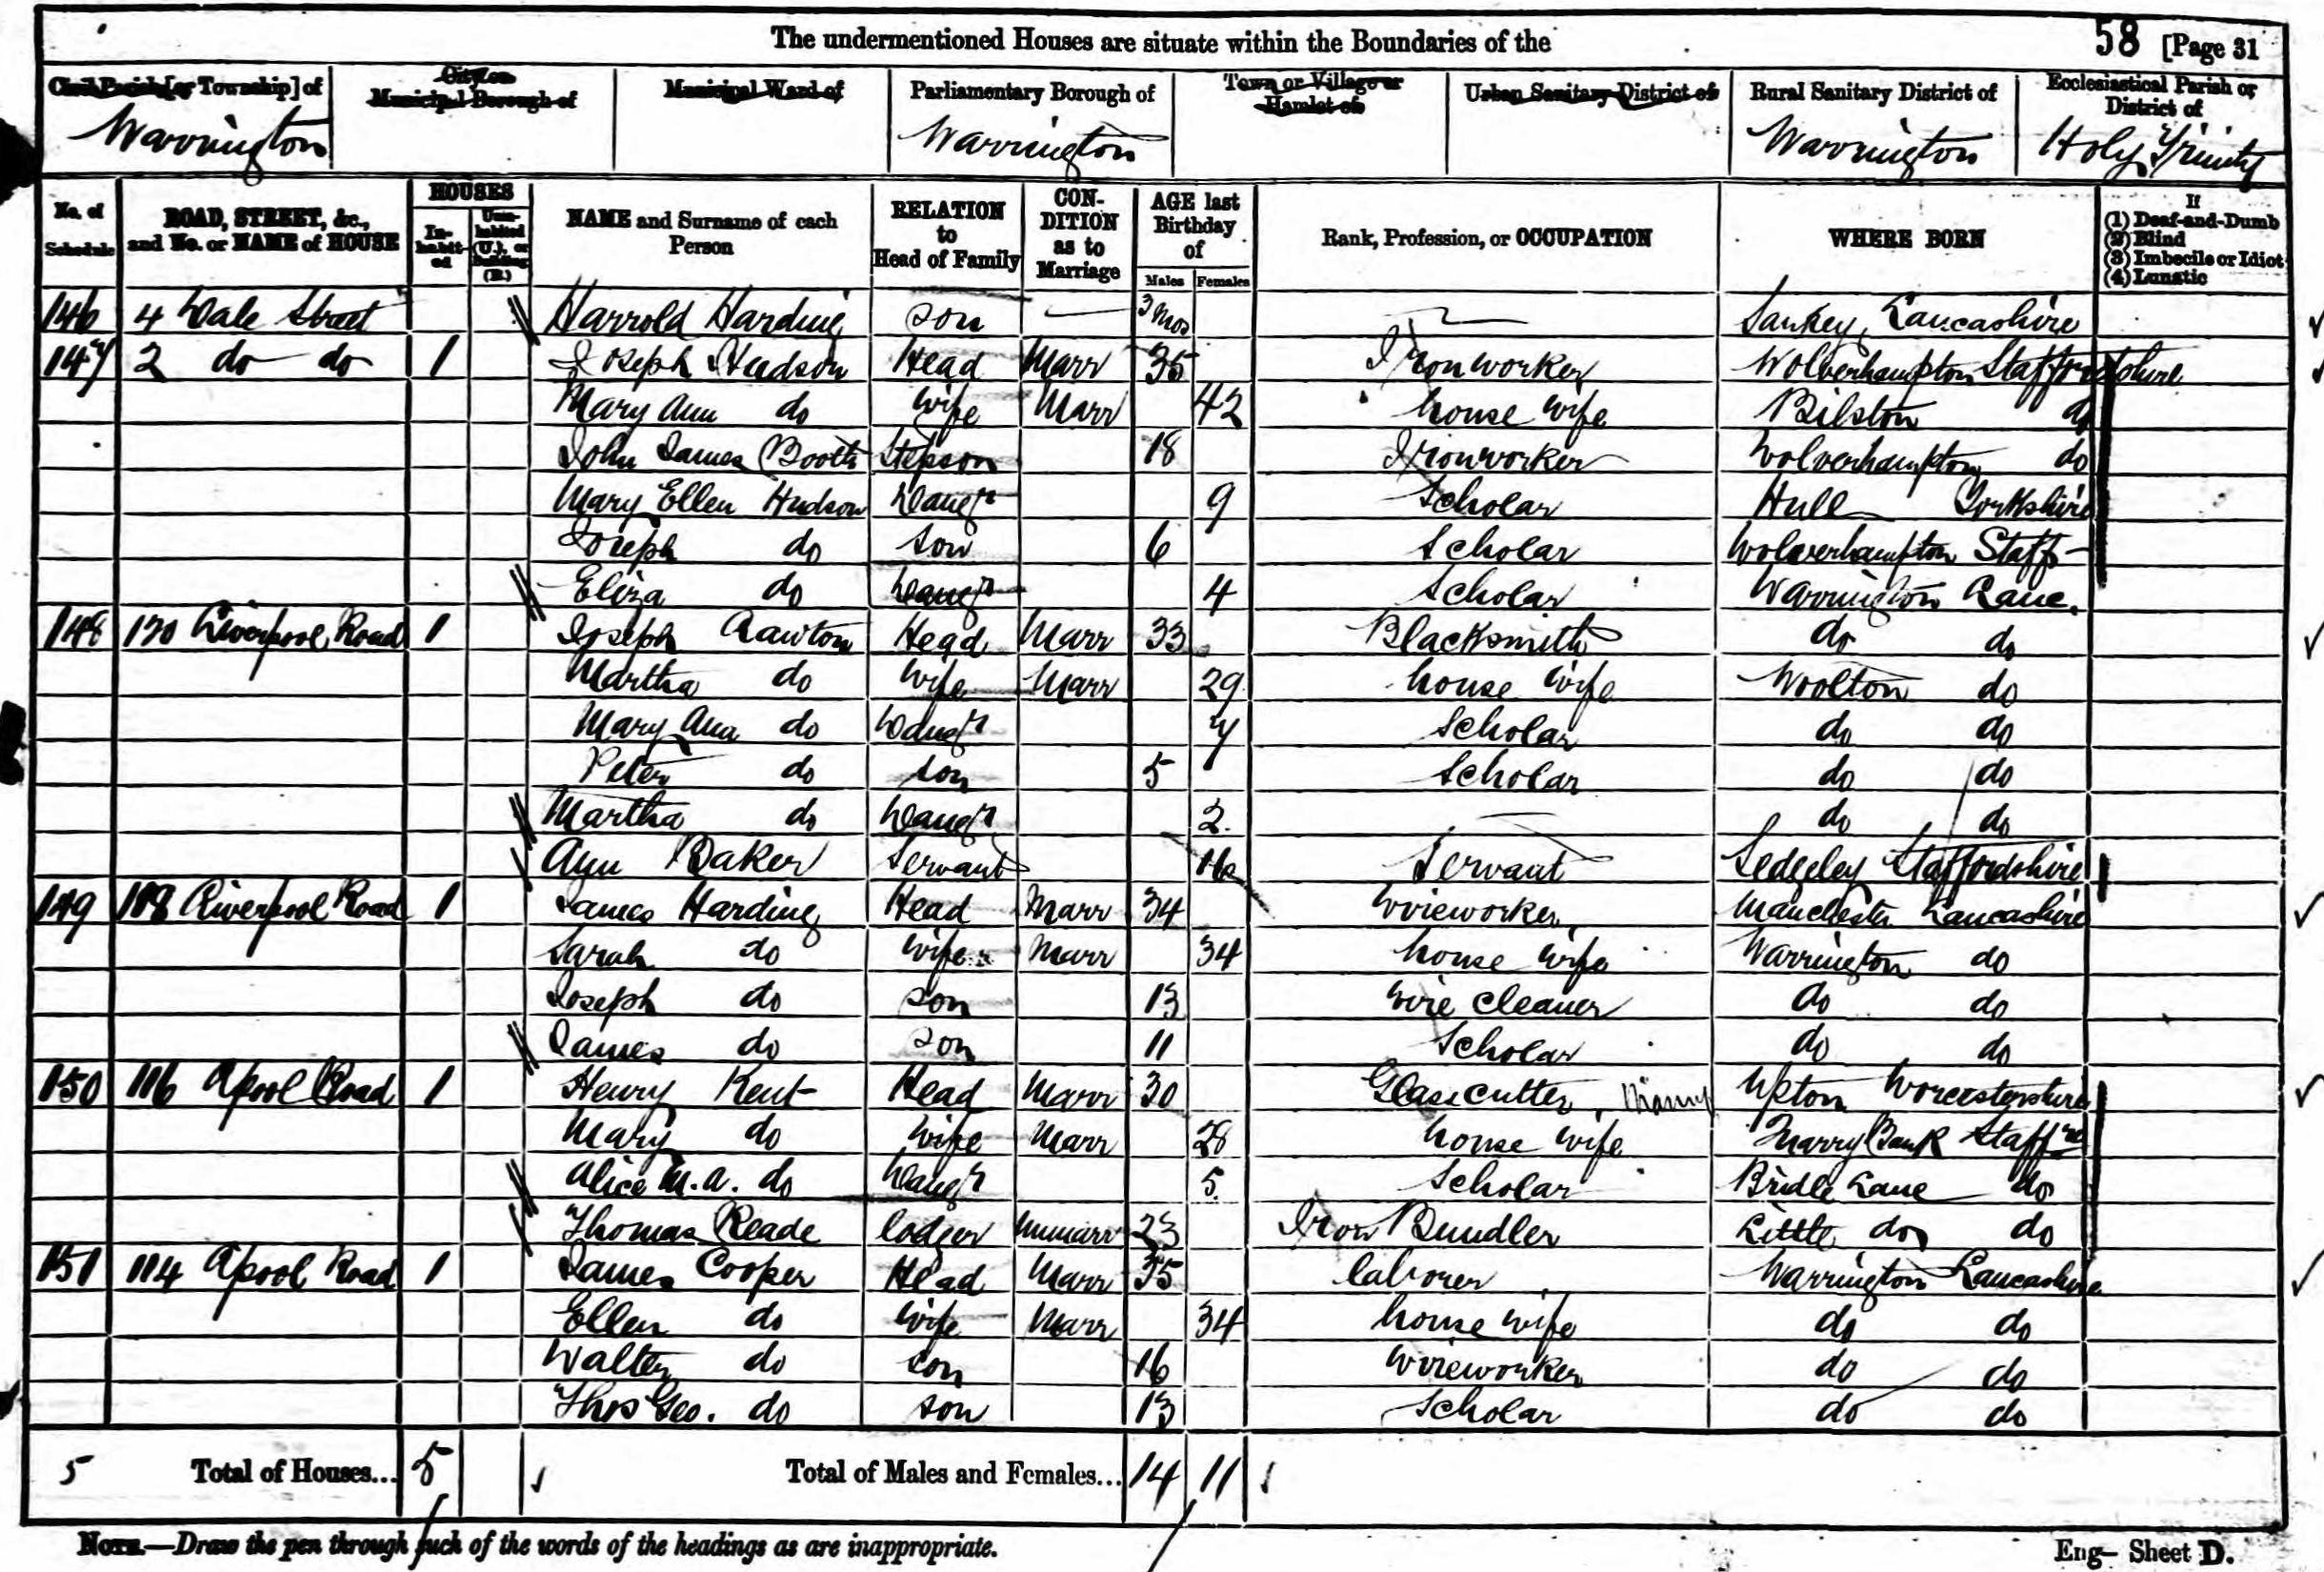 The undermentioned Houses are situate within the Boundaries of the
58 [Page 31
Civil Parish [or Township] of
City or Municipal Borough of
Municipal Ward of
Parliamentary Borough of
Town or Village or Hamlet of
Urban Sanitary District of
Rural Sanitary District of
Ecclesiastical Parish or District of
Warrington Warrington Warrington Holy Trinity
No. of Schedule
ROAD, STREET, &c., and No. or NAME of HOUSE
HOUSES
In-habit-ed
Unin-habited (U.), or Building (B.)
NAME and Surname of each Person
RELATION to Head of Family
CON-DITION as to Marriage
AGE last Birthday of
Males Females
Rank, Profession, or OCCUPATION
WHERE BORN
If
(1) Deaf-and-Dumb
(2) Blind
(3) Imbecile or Idiot
(4) Lunatic
146 4 Dale Street Harrold Harding son — 3 Mos — Sankey, Lancashire
147 2 do do 1 Joseph Hudson Head Marr 35 Ironworker Wolverhampton Staffordshire
Mary Ann do Wife Marr 42 house wife Bilston do
John James Booth Stepson 18 Ironworker Wolverhampton do
Mary Ellen Hudson Daugr 9 Scholar Hull Yorkshire
Joseph do son 6 Scholar Wolverhampton Staff-
Eliza do Daugr 4 Scholar Warrington Lanc.
148 120 Liverpool Road 1 Joseph Rawton Head Marr 33 Blacksmith do do
Martha do Wife Marr 29 house wife Woolton do
Mary Ann do Daugr 7 Scholar do do
Peter do son 5 Scholar do do
Martha do Daugr 2 — do do
Ann Baker Servant 16 Servant Sedgley Staffordshire
149 118 Liverpool Road 1 James Harding Head Marr 34 Wireworker Manchester Lancashire
Sarah do Wife Marr 34 house wife Warrington do
Joseph do son 13 Wire cleaner do do
James do son 11 Scholar do do
150 116 Lpool Road 1 Henry Kent Head Marr 30 Glass cutter, Upton Worcestershire
Mary do Wife Marr 28 house wife Bank Staffre
Alice M.A. do Daugr 5 Scholar Bridle Lane do
Thomas Reade lodger Unmarr 23 Iron Bundler Little do do
151 114 Lpool Road 1 James Cooper Head Marr 35 laborer Warrington Lancashire
Ellen do Wife Marr 34 house wife do do
Walter do son 16 Wireworker do do
Thos Geo. do son 13 Scholar do do
5 Total of Houses... 5 Total of Males and Females... 14 11
NOTE.—Draw the pen through such of the words of the headings as are inappropriate.
Eng— Sheet D.